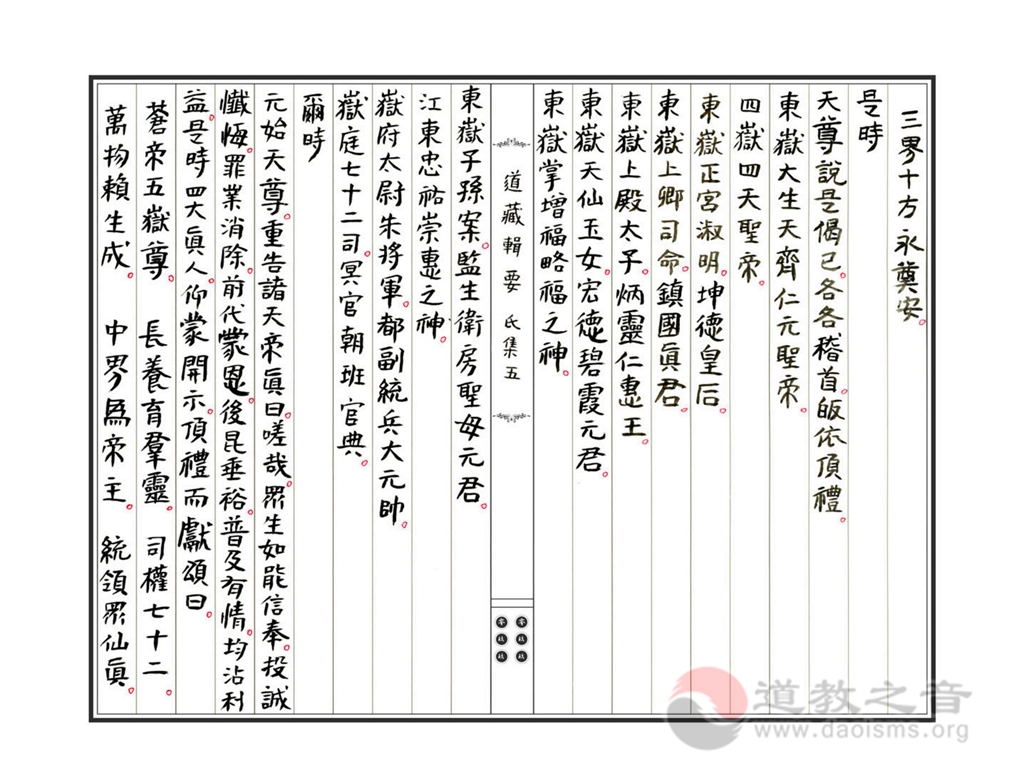 三界十方永奠安。
是時
天尊說是偈已。各各稽首。皈依頂禮。
東嶽大生天齊仁元聖帝。
四嶽四天聖帝。
東嶽正宮淑明。坤德皇后。
東嶽上卿司命。鎮國眞君。
東嶽上殿太子。炳靈仁惠王。
東嶽天仙玉女。宏德碧霞元君。
東嶽掌增福略福之神。
道藏輯要 氐集五
東嶽子孫案。監生衛房聖母元君。
江東忠祐崇惠之神。
嶽府太尉朱將軍。都副統兵大元帥。
嶽庭七十二司。冥官朝班官典。
爾時
元始天尊。重告諸天帝眞曰。嗟哉。眾生如能信奉。投誠
懺悔。罪業消除。前代蒙恩。後昆垂裕。普及有情。均沾利
益。是時四大眞人。仰蒙開示。頂禮而獻頌曰。
蒼帝五嶽尊。 長養育羣靈。 司權七十二。
萬物賴生成。 中界爲帝主。 統領眾仙眞。
道教之音
www.daoisms.org